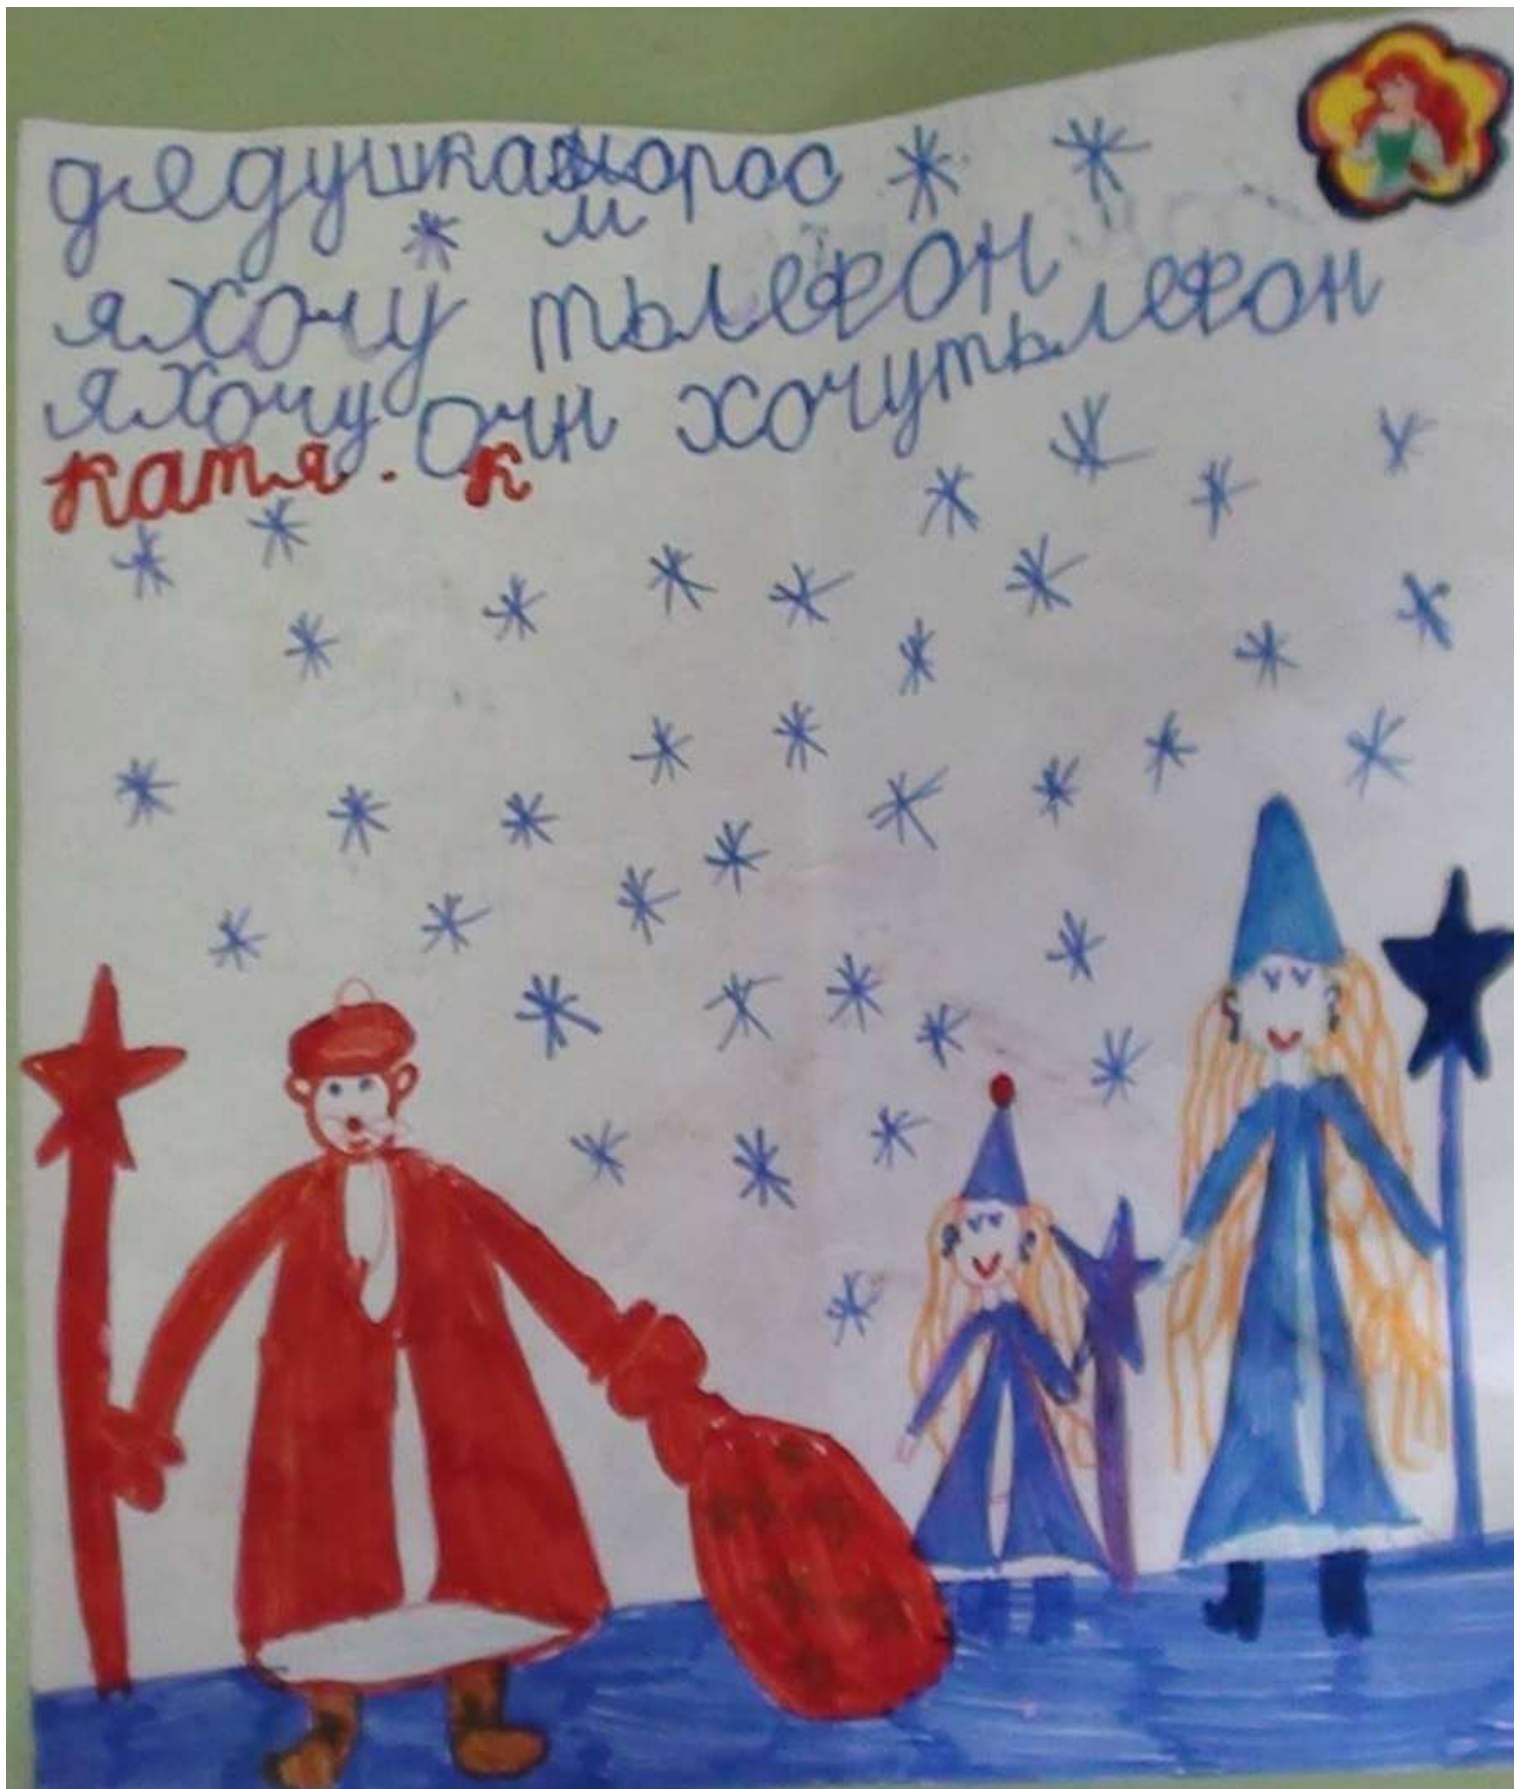 дядушкаморос
м
яхочу тылефон
яхочу очн хочутылефон
катя. к